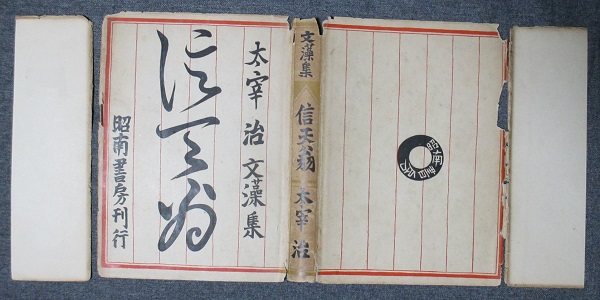 太宰 治 文藻集
信天翁
昭南書房刊行
文藻集 信天翁 太宰 治
昭南書房